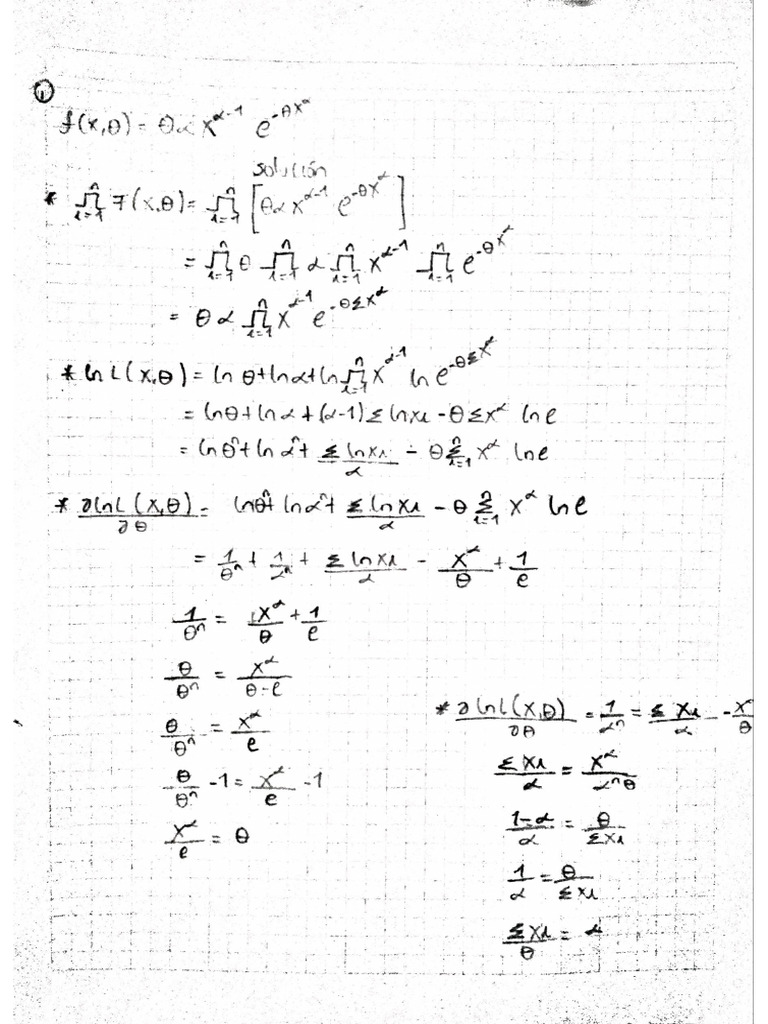 ①
f(x,θ) = θα x^{α-1} e^{-θx^α}
solución
* ∏_{i=1}^{n} F(x,θ) = ∏_{i=1}^{n} [θα x^{α-1} e^{-θx^α}]
= ∏_{i=1}^{n} θ ∏_{i=1}^{n} α ∏_{i=1}^{n} x^{α-1} ∏_{i=1}^{n} e^{-θx^α}
= θα ∏_{i=1}^{n} x^{α-1} e^{-θΣx^α}
* ln L(x,θ) = ln θ + ln α + ln ∏_{i=1}^{n} x^{α-1} ln e^{-θΣx^α}
= lnθ + ln α + (α-1) Σ ln xi - θ Σx^α ln e
= ln θ^n + ln α^n + Σ ln xi / α - θ Σ_{i=1}^{n} x^α ln e
* ∂ln L(x,θ) / ∂θ = lnθ^n + ln α^n + Σ ln xi / α - θ Σ_{i=1}^{n} x^α ln e
= 1/θ^n + 1/α^n + Σ ln xi / α - x^α/θ + 1/e
1/θ^n = x^α/θ + 1/e
θ/θ^n = x^α/θ-e
θ/θ^n = x^α/e
θ/θ^n - 1 = x^α/e - 1
x^α/e = θ
* ∂ ln L(x,θ) / ∂θ = 1/α^n = Σ xi / α - x^α/θ
Σ xi / α = x^α / α^n θ
1-α / α = θ / Σxi
1/α = θ / Σxi
Σ xi / θ = α